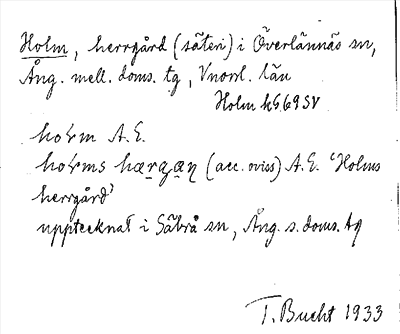 Holm, herrgård (säteri) i Överlännäs sn,
Ång. mell. doms. tg, Vnorrl. län
Holm kG69SV
hoɫm A.E.
hoɫms hærgaɳ (acc. oviss) A.E. 'Holms
herrgård'
upptecknat i Säbrå sn, Ång. s. doms. tg
T. Bucht 1933